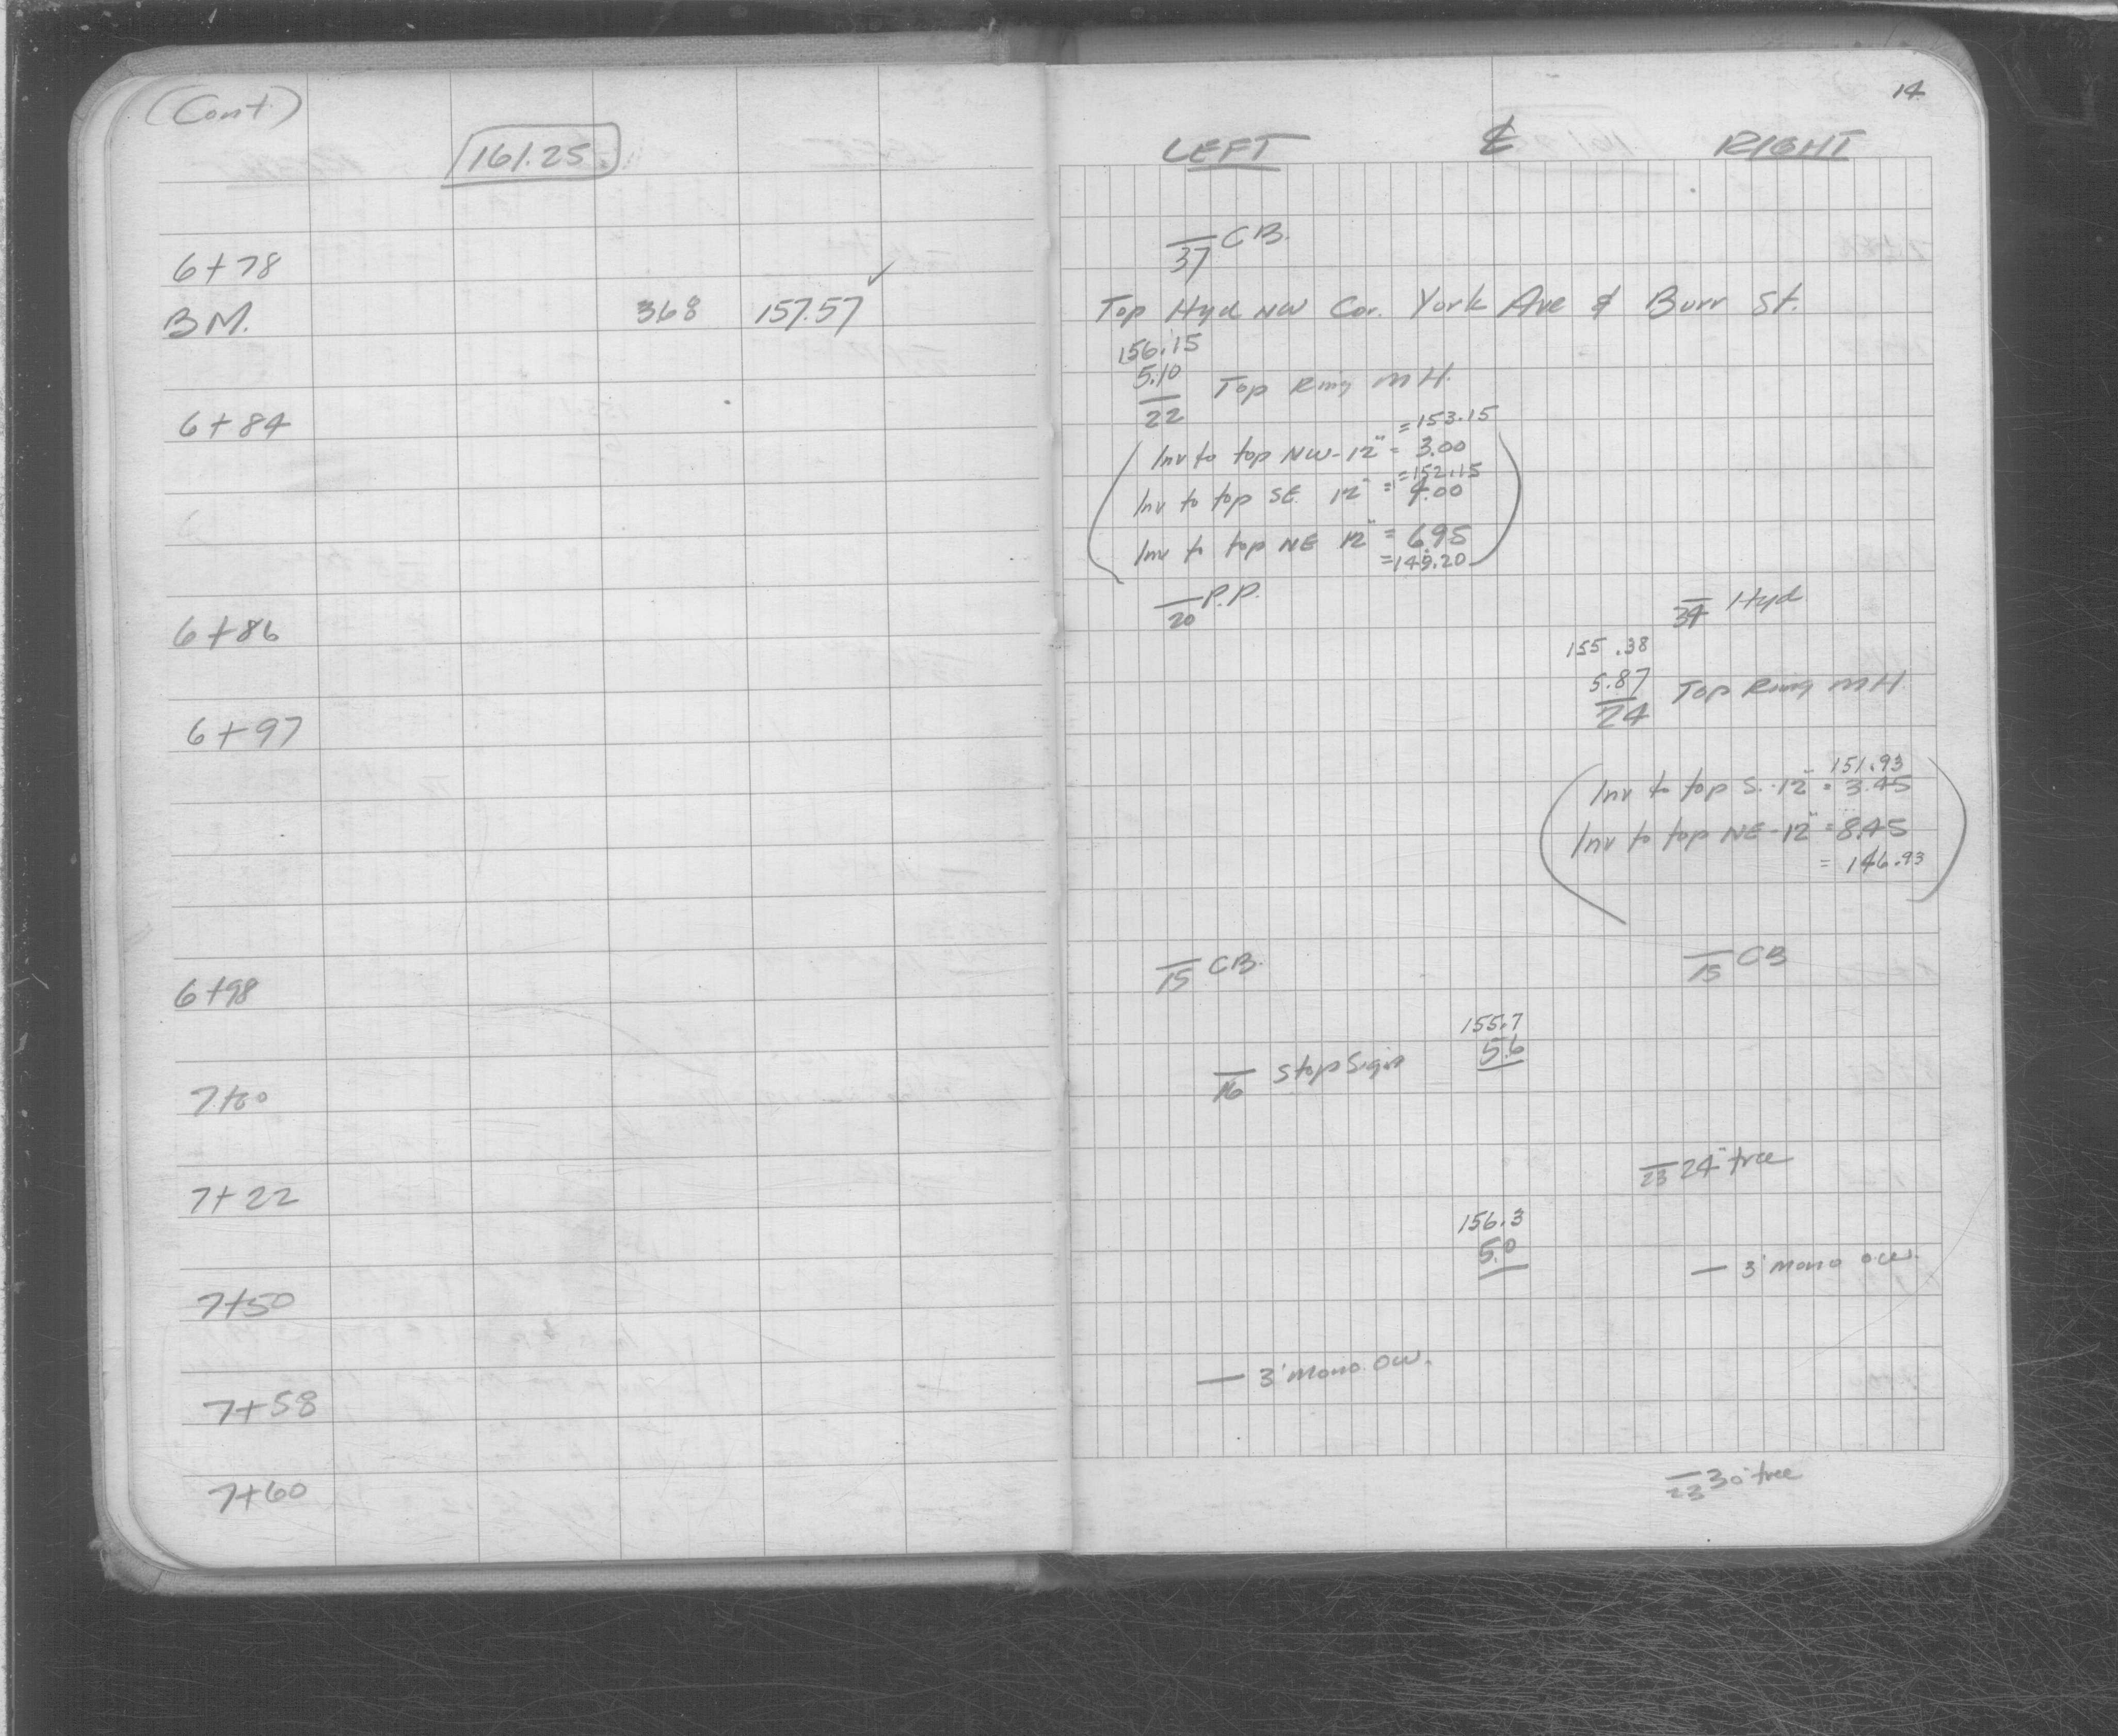 (Cont)
161.25
6+78
BM. 368 157.57 ✓
6+84
6+86
6+97
6+98
7+00
7+22
7+50
7+58
7+60
14
LEFT ℄ RIGHT
37 CB.
Top Hyd NW Cor. York Ave & Burr St.
156.15
5.10
22 Top Ring MH.
=153.15
Inv to top NW-12" = 3.00
=152.15
Inv to top SE 12" = 4.00
Inv to top NE 12" = 6.95
=149.20
20 P.P.
34 Hyd
155.38
5.87
24 Top Ring MH
151.93
Inv to top S.-12" = 3.45
Inv to top NE-12" = 8.45
= 146.93
15 CB.
15 CB
155.7
5.6
16 Stop Sign
23 24" tree
156.3
5.0
— 3' mono o.w.
— 3' mono. ow.
23 30" tree